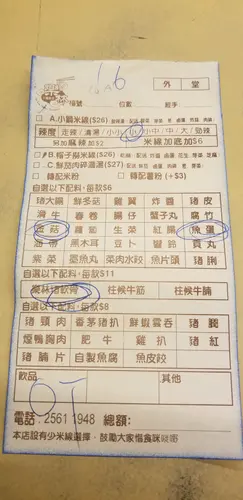 16
外 堂
檯號 位數 經手
A.小鍋米線($26)
辣度 走辣/清湯/小小/小/小中/中/大/勁辣
另加麻辣加$2 米線加底加$6
B.帽子麻米線($26)
C.鮮茄肉碎湯選($27)
轉配米粉 轉配薯粉 (+$3)
自選以下配料,每款$6
豬大腸 鮮多菇 雞翼 炸醬 豬皮
滑牛 春卷 腸仔 蟹子丸 腐竹
金菇 蘿蔔 生菜 紅腸 魚蛋
油吉 黑木耳 豆卜 響鈴 貢丸
紫菜 墨魚丸 菜肉水餃 魚片頭 豬脷
自選以下配料,每款$11
柱侯牛筋 柱侯牛腩
自選以下配料,每款$8
豬頸肉 香茅豬扒 鮮蝦雲吞 豬膶
煙鴨胸肉 肥牛 雞扒 豬紅
豬腩片 自製魚腐 魚皮餃
飲品 其他
OT
電話:2561 1948 總額:
本店設有少米線選擇,鼓勵大家惜食咪嘥嘢